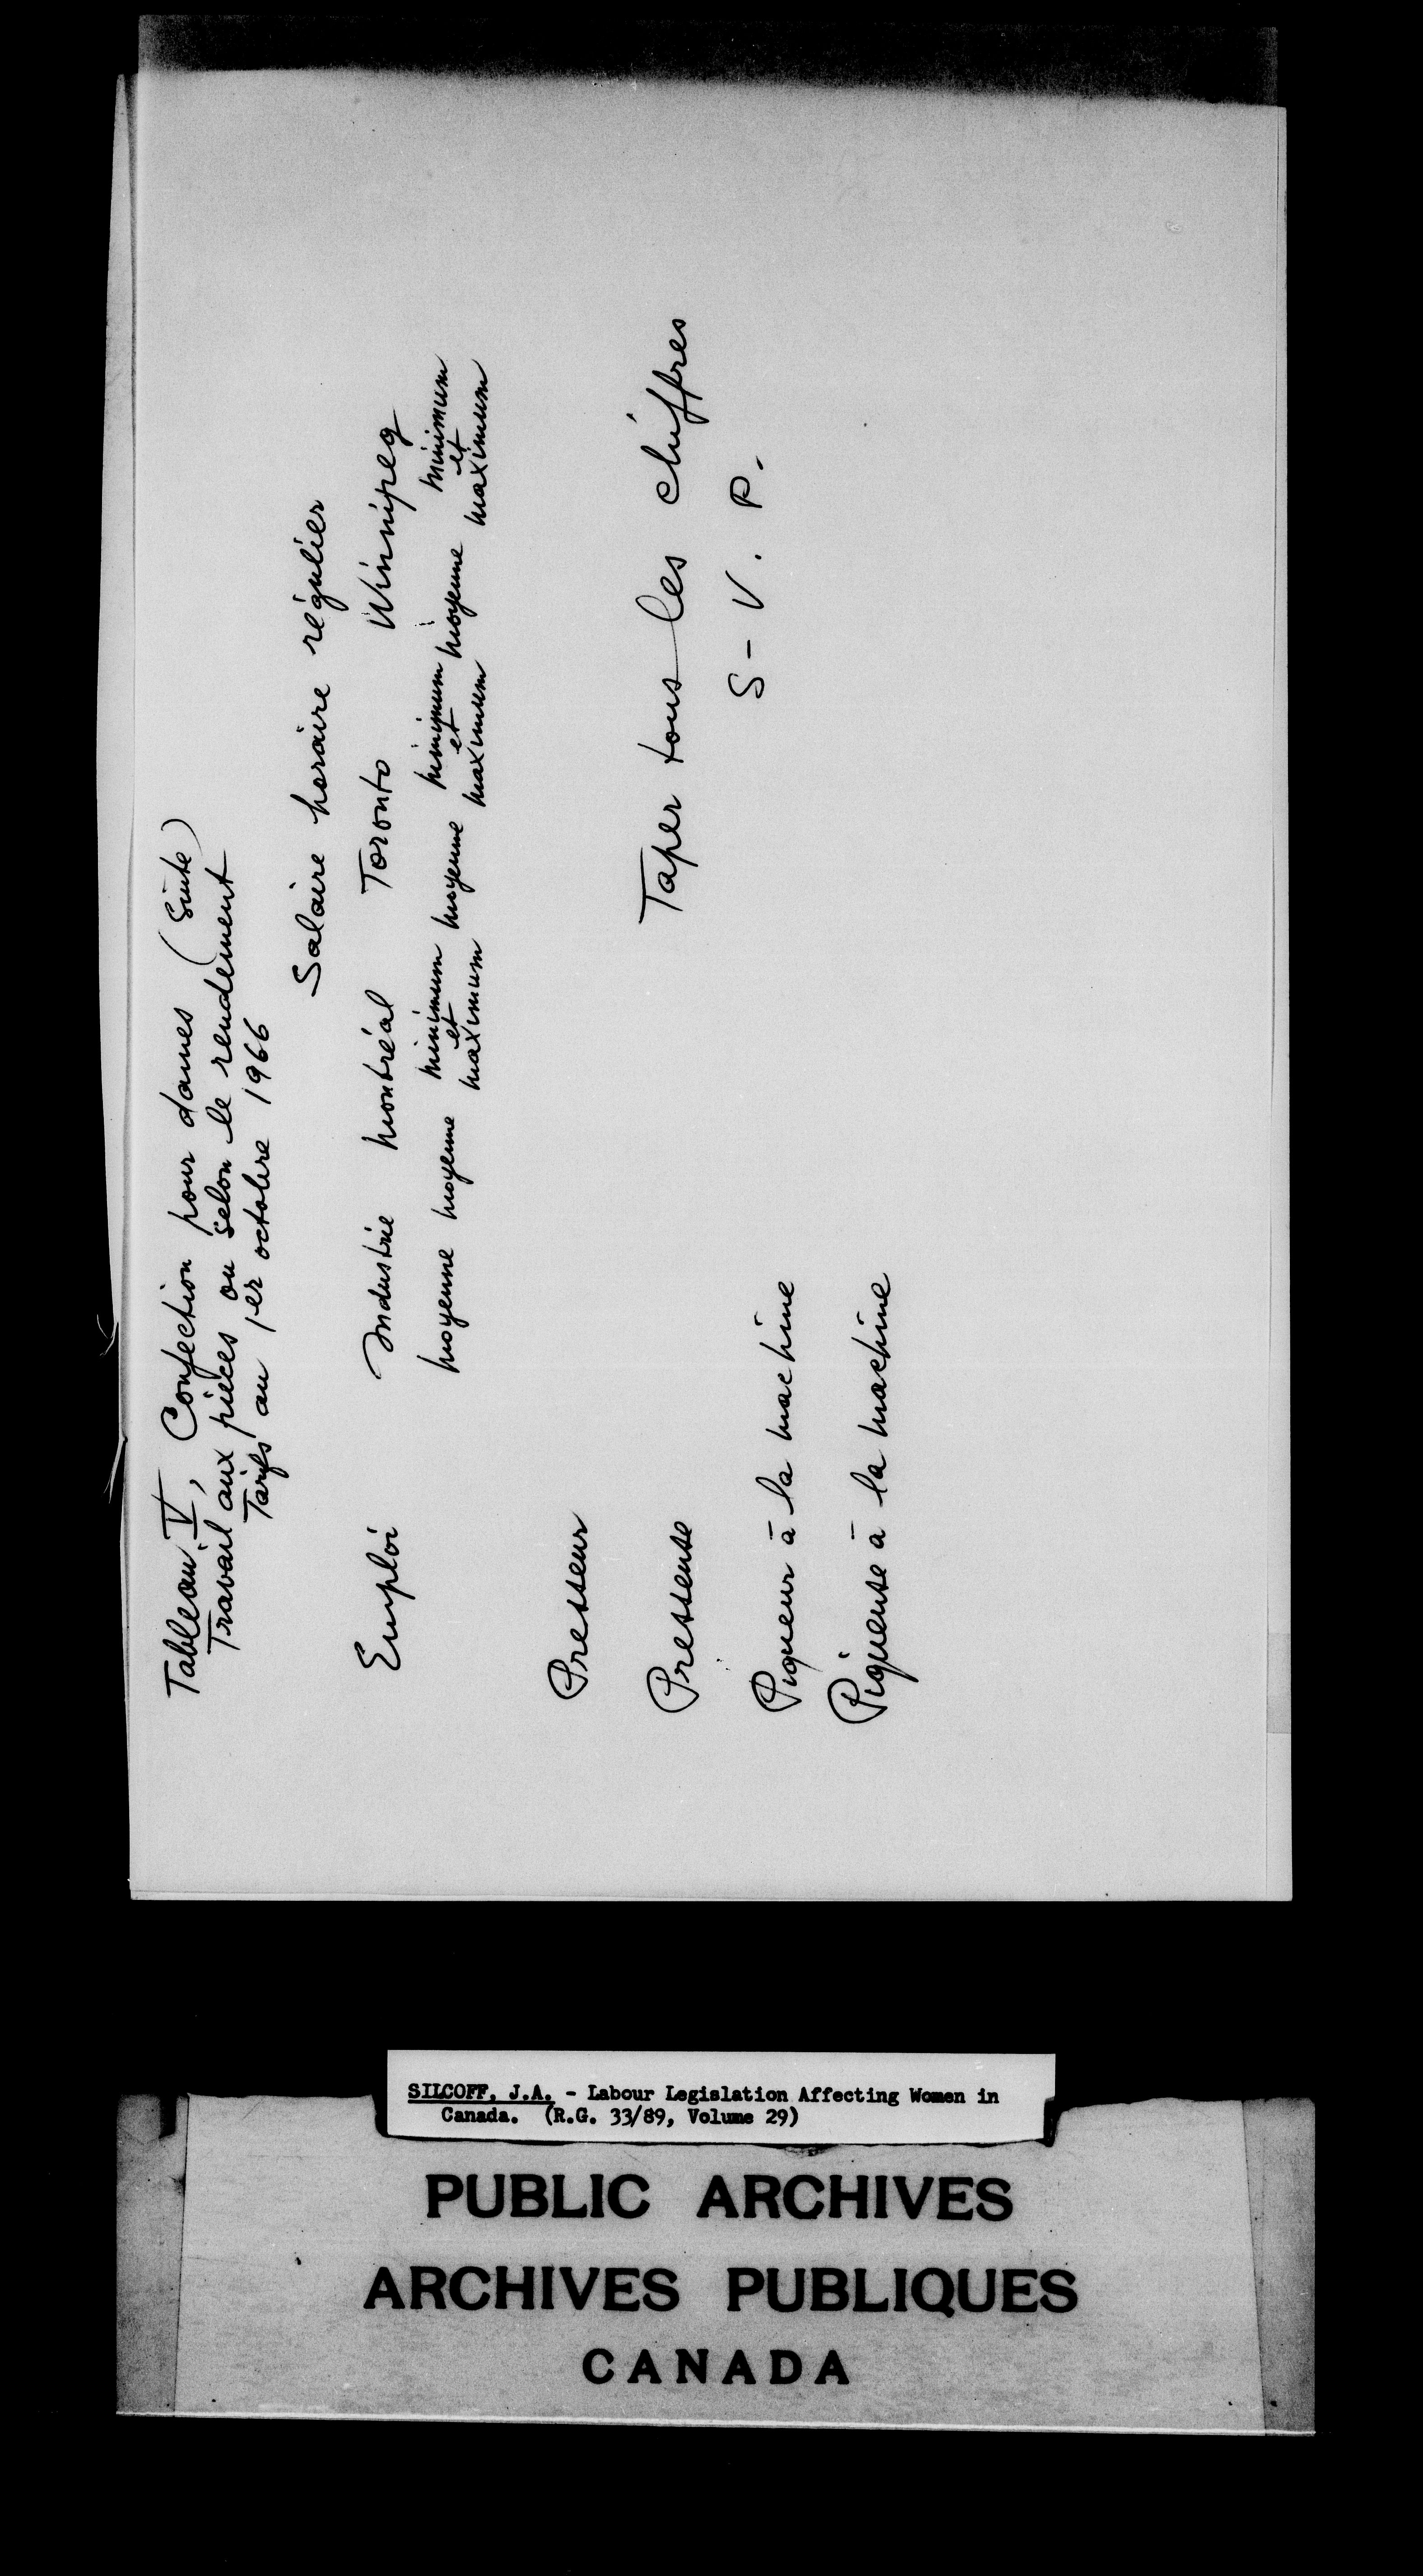 Tableau V, Confection pour dames (suite)
Travail aux pièces ou selon le rendement
Tarifs au 1er octobre 1966
Salaire horaire régulier
Emploi Industrie Montréal Toronto Winnipeg
moyenne moyenne minimum et maximum moyenne minimum et maximum moyenne minimum et maximum
Presseur
Presseuse
Taper tous les chiffres
S-V.P.
Piqueur à la machine
Piqueuse à la machine
SILCOFF, J.A. - Labour Legislation Affecting Women in
Canada. (R.G. 33/89, Volume 29)
PUBLIC ARCHIVES
ARCHIVES PUBLIQUES
CANADA